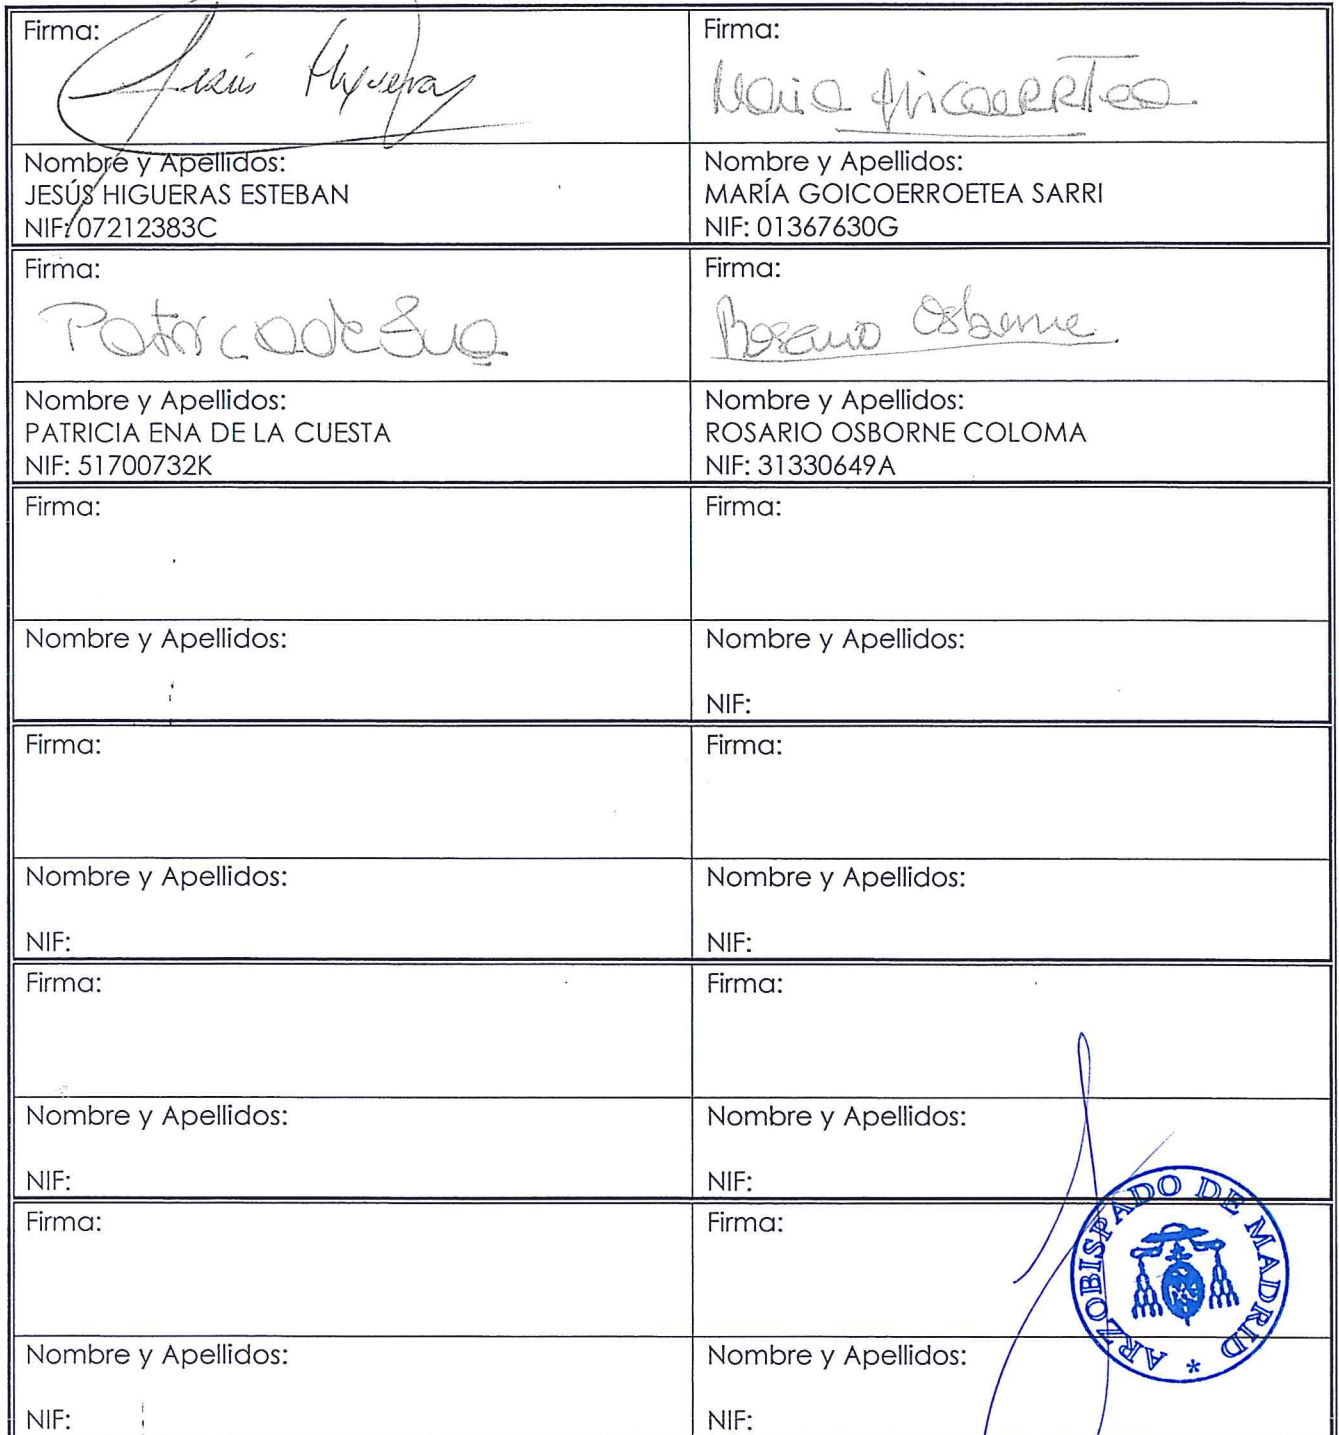 Firma:
Jesús Higueras
Firma:
María Goicoerrotea
Nombre y Apellidos:
JESÚS HIGUERAS ESTEBAN
NIF: 07212383C
Nombre y Apellidos:
MARÍA GOICOERROETEA SARRI
NIF: 01367630G
Firma:
Patricia de Ena
Firma:
Rosario Osborne
Nombre y Apellidos:
PATRICIA ENA DE LA CUESTA
NIF: 51700732K
Nombre y Apellidos:
ROSARIO OSBORNE COLOMA
NIF: 31330649A
Firma:
Firma:
Nombre y Apellidos:
Nombre y Apellidos:
NIF:
Firma:
Firma:
Nombre y Apellidos:
NIF:
Nombre y Apellidos:
NIF:
Firma:
Firma:
Nombre y Apellidos:
NIF:
Nombre y Apellidos:
NIF:
Firma:
Firma:
ARZOBISPADO DE MADRID *
Nombre y Apellidos:
NIF:
Nombre y Apellidos:
NIF: